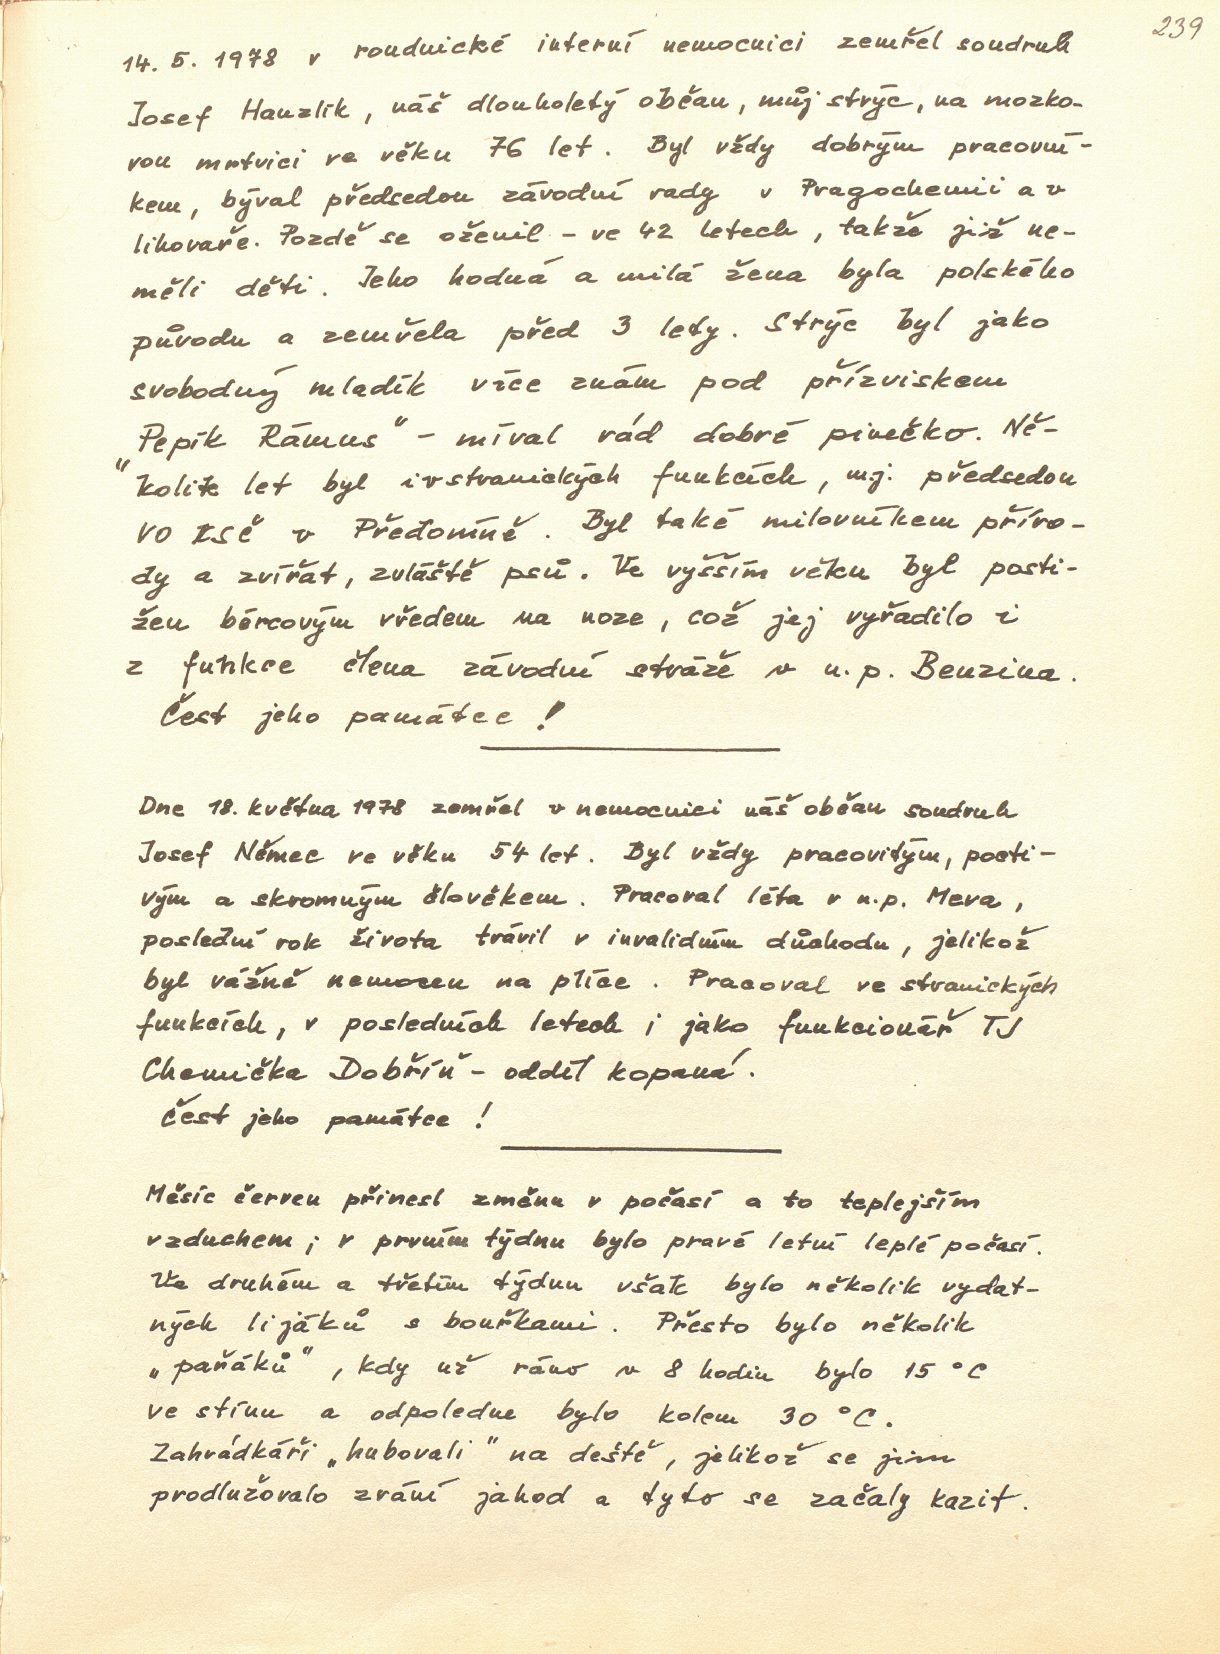 239
14. 5. 1978 v roudnické interní nemocnici zemřel soudruh
Josef Hanzlík, náš dlouholetý občan, můj strýc, na mozko-
vou mrtvici ve věku 76 let. Byl vždy dobrým pracovní-
kem, býval předsedou závodní rady v Pragochemii a v
lihovaře. Pozdě se oženil - ve 42 letech, takže již ne-
měli děti. Jeho hodná a milá žena byla polského
původu a zemřela před 3 lety. Strýc byl jako
svobodný mladík více znám pod přízviskem
„Pepík Rámus" - míval rád dobré pivečko. Ně-
kolik let byl i v stranických funkcích, mj. předsedou
VO KSČ v Předoníně. Byl také milovníkem příro-
dy a zvířat, zvláště psů. Ve vyšším věku byl posti-
žen bércovým vředem na noze, což jej vyřadilo i
z funkce člena závodní stráže v n.p. Benzina.
Čest jeho památce!
Dne 18. května 1978 zemřel v nemocnici náš občan soudruh
Josef Němec ve věku 54 let. Byl vždy pracovitým, pocti-
vým a skromným člověkem. Pracoval léta v n.p. Meva,
poslední rok života trávil v invalidním důchodu, jelikož
byl vážně nemocen na plíce. Pracoval ve stranických
funkcích, v posledních letech i jako funkcionář TJ
Chemička Dobříň - oddíl kopaná.
Čest jeho památce!
Měsíc červen přinesl změnu v počasí a to teplejším
vzduchem; v prvním týdnu bylo pravé letní teplé počasí.
Ve druhém a třetím týdnu však bylo několik vydat-
ných lijáků s bouřkami. Přesto bylo několik
„paňáků", kdy už ráno v 8 hodin bylo 15 °C
ve stínu a odpoledne bylo kolem 30 °C.
Zahrádkáři „hubovali" na deště, jelikož se jim
prodlužovalo zrání jahod a tyto se začaly kazit.